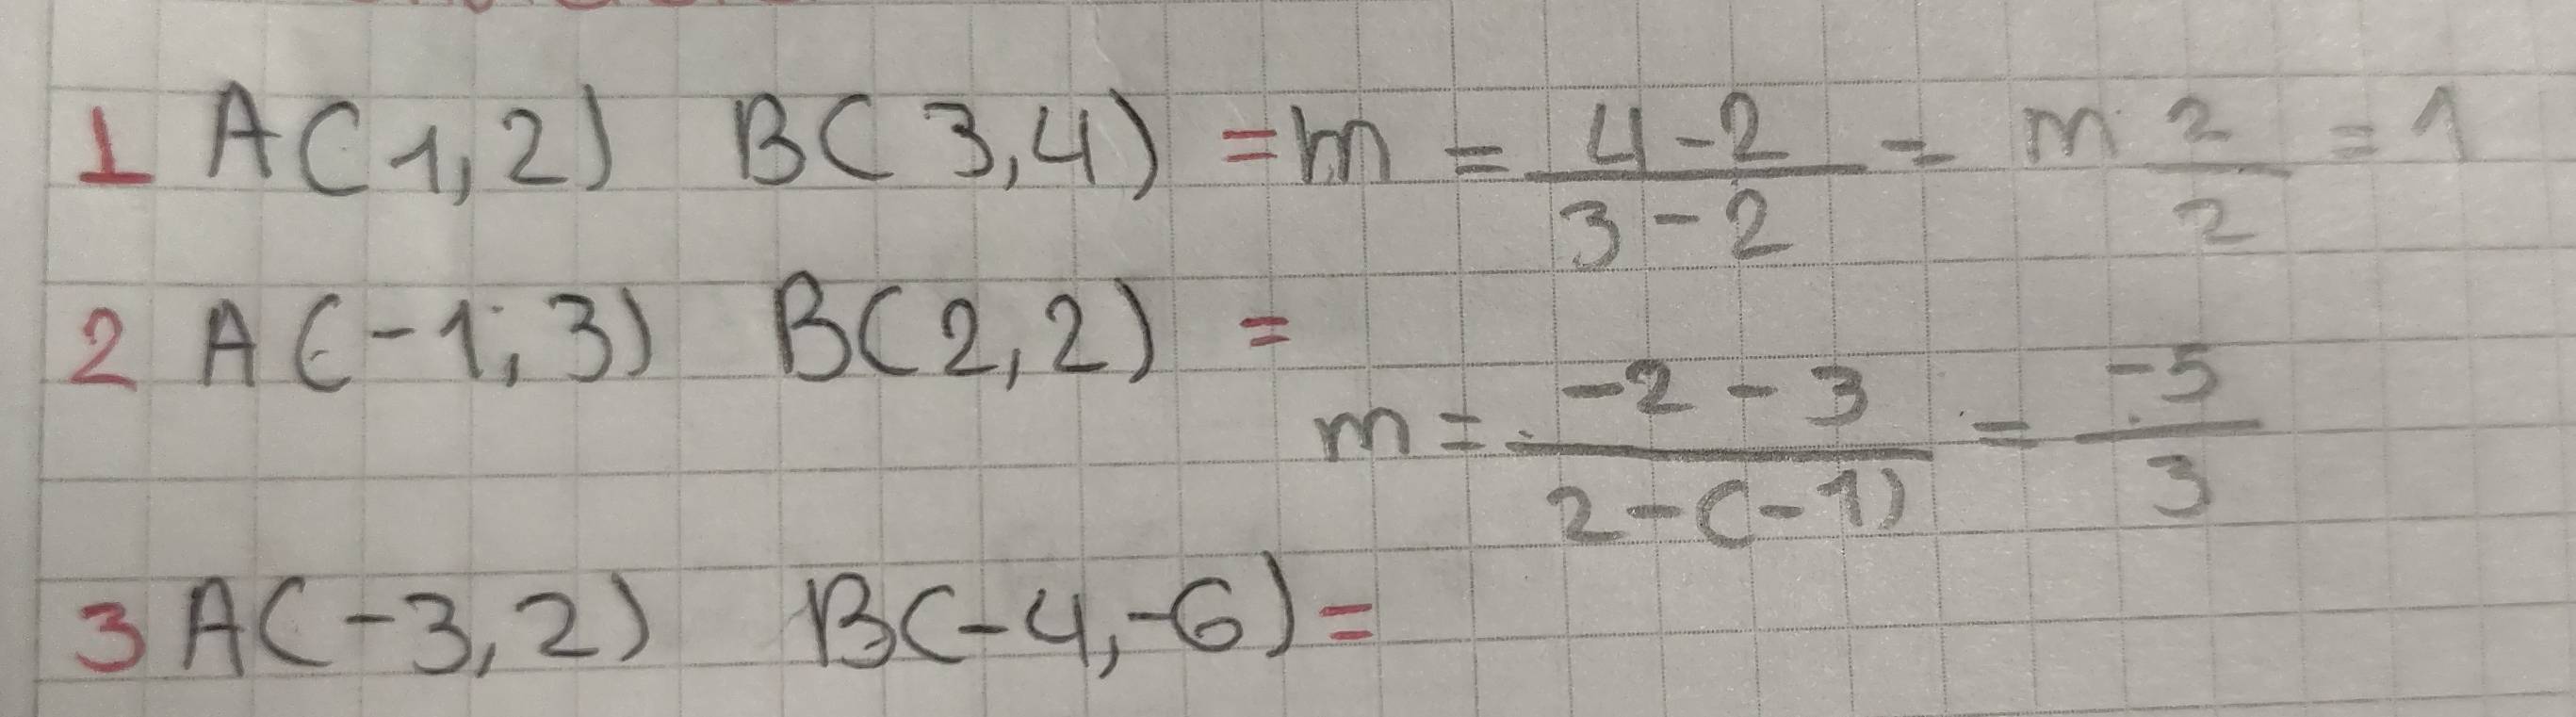 1 A(1,2) B(3,4) = m = 4-2/3-2 = m 2/2 = 1
2 A(-1,3) B(2,2) =
m = -2-3/2-(-1) = -5/3
3 A(-3,2) B(-4,-6) =